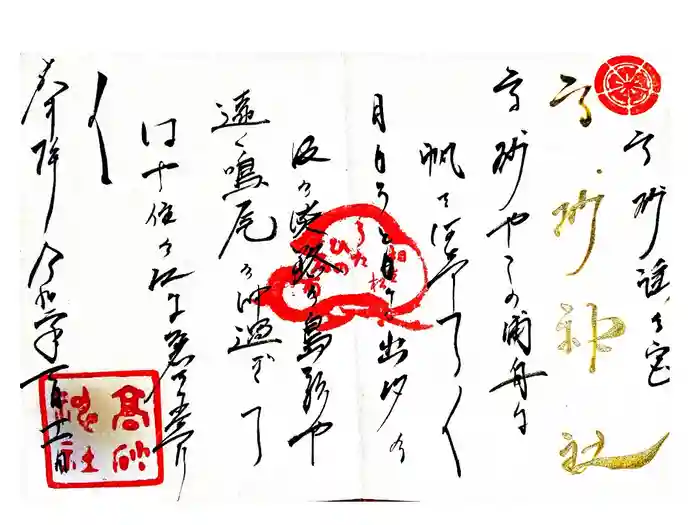 高砂
高砂神社
高砂やこの浦舟に
帆を上げて〱
月もろともに出汐の
波の淡路の島影や
遠く鳴尾の沖過ぎて
はや住の江に着きにけり
〱
奉拝 令和
高砂神社